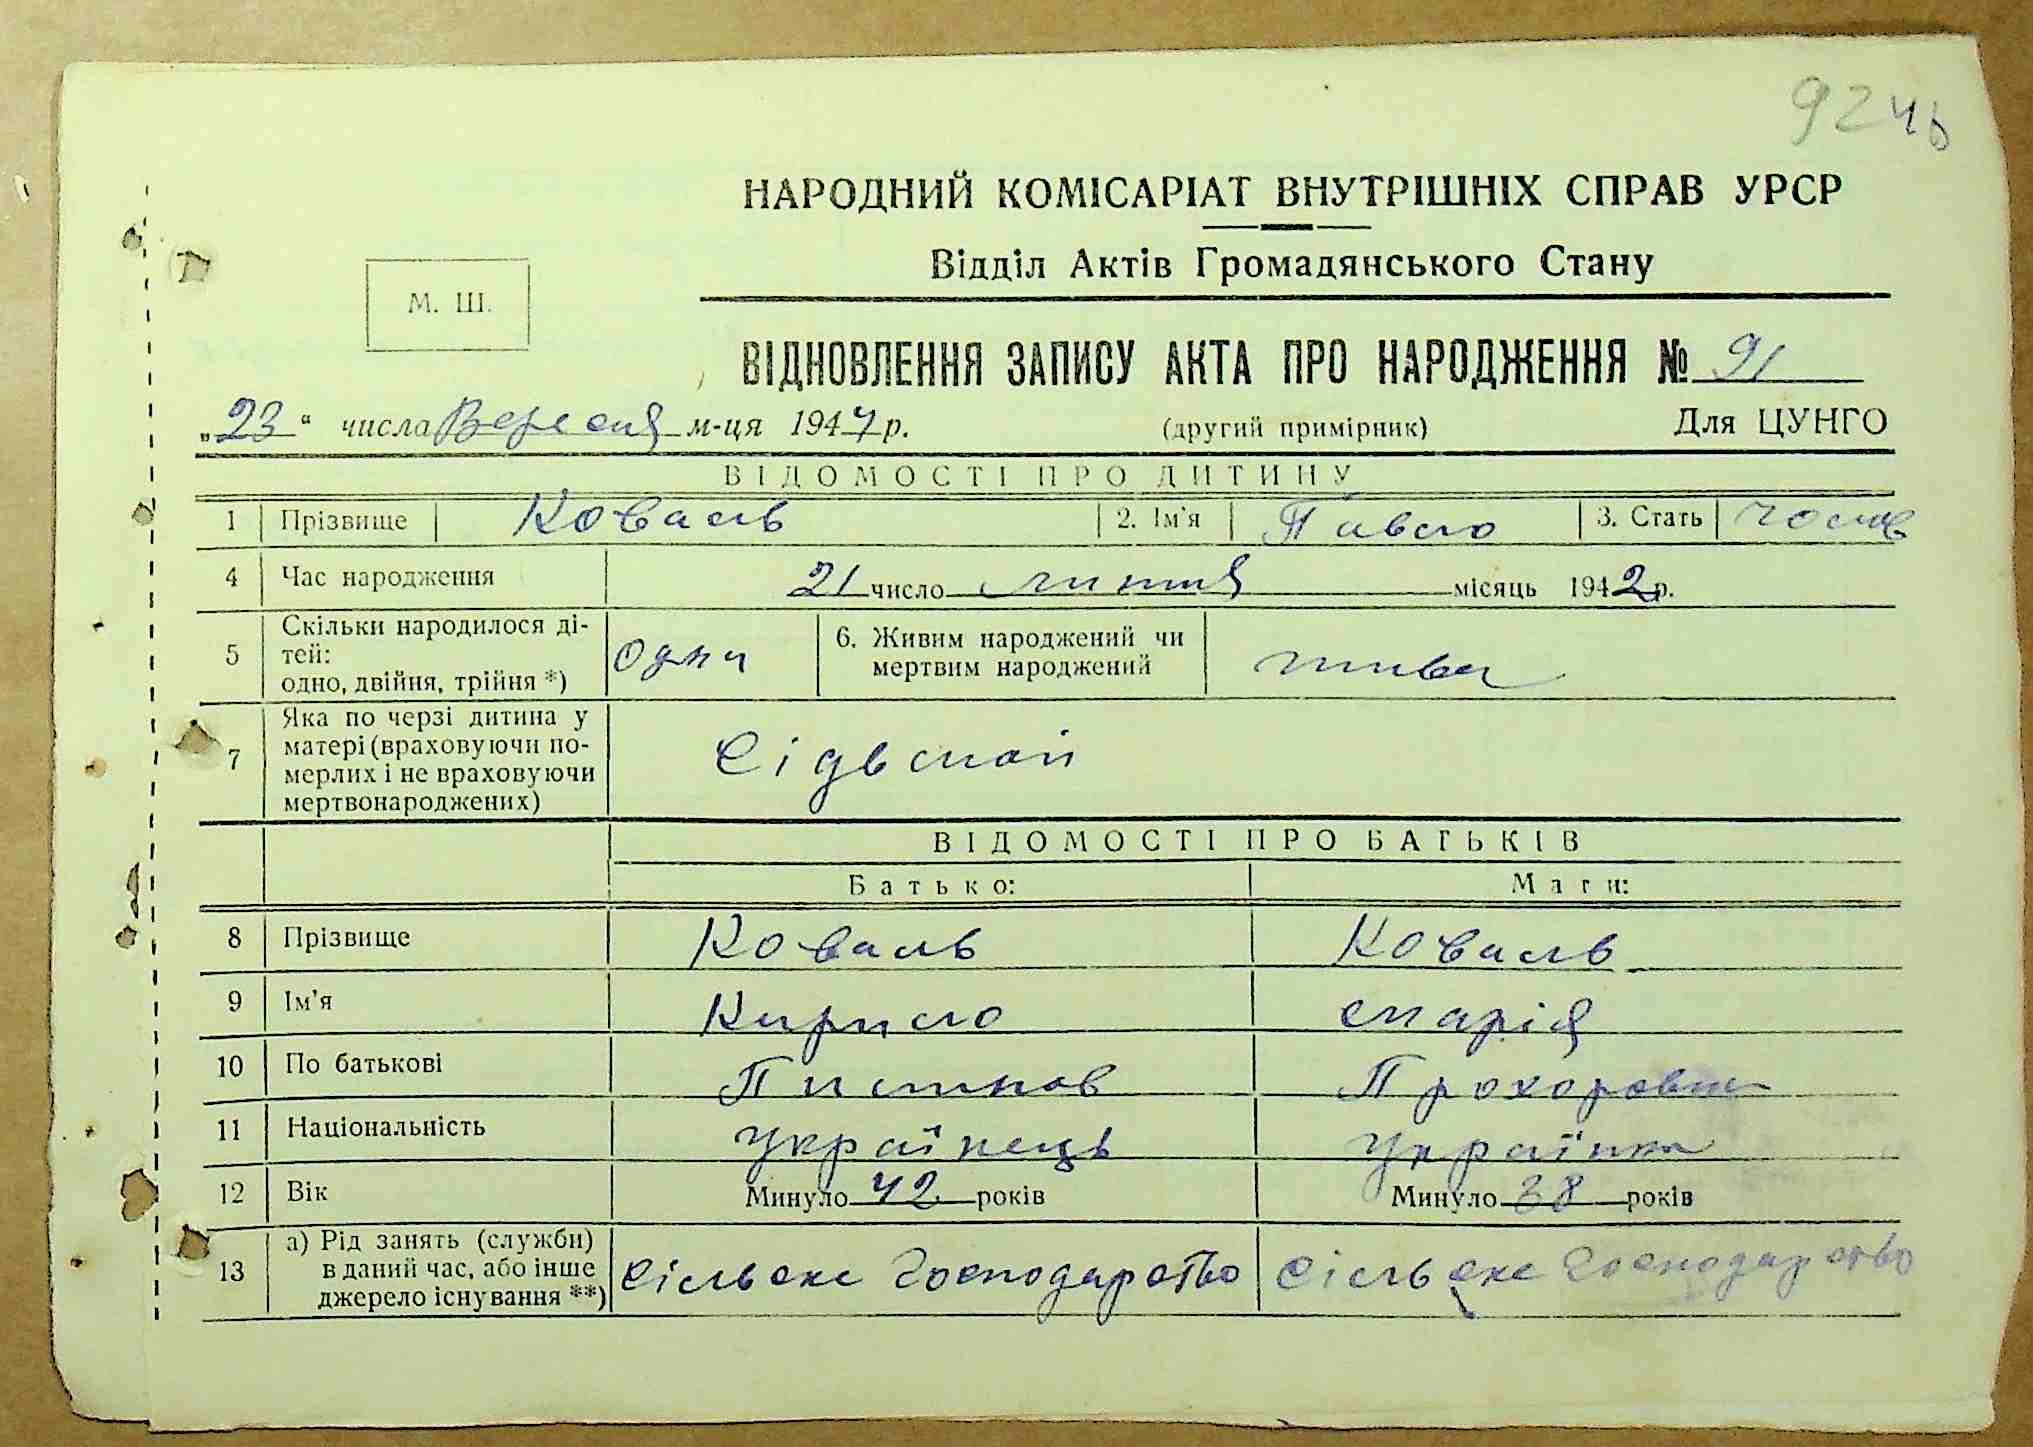 92 чв
НАРОДНИЙ КОМІСАРІАТ ВНУТРІШНІХ СПРАВ УРСР
Відділ Актів Громадянського Стану
М. Ш.
ВІДНОВЛЕННЯ ЗАПИСУ АКТА ПРО НАРОДЖЕННЯ № 91
„23“ числа Вересня м-ця 1944 р. (другий примірник) Для ЦУНГО
ВІДОМОСТІ ПРО ДИТИНУ
1 Прізвище Коваль 2. Ім'я Павло 3. Стать
4 Час народження 21 число липня місяць 1942 р.
5 Скільки народилося ді-
тей:
одно, двійня, трійня *) одна 6. Живим народжений чи
мертвим народжений жива
7 Яка по черзі дитина у
матері (враховуючи по-
мерлих і не враховуючи
мертвонароджених) Сідьмой
ВІДОМОСТІ ПРО БАТЬКІВ
Батько: Мати:
8 Прізвище Коваль Коваль
9 Ім'я Кирило Марія
10 По батькові Прохоровна
11 Національність Українець Українка
12 Вік Минуло 42 років Минуло 38 років
13 а) Рід занять (служби)
в даний час, або інше
джерело існування **) Сільске Господарство Сільске Господарство